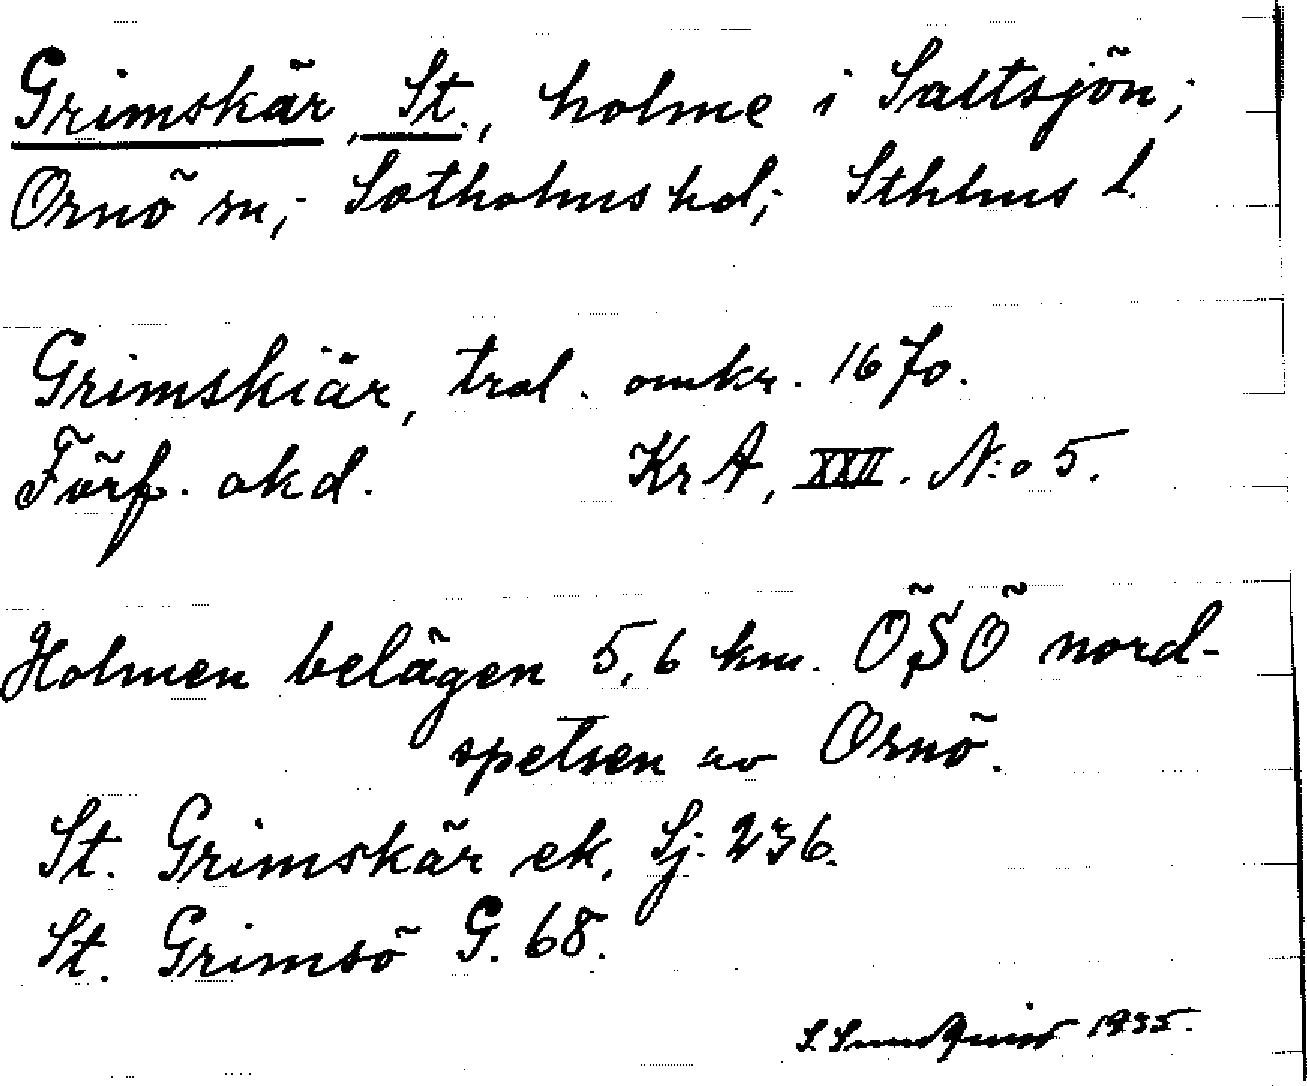 Grimskär, St., holme i Saltsjön;
Ornö sn; Sotholms hd; Sthlms l.
Grimskiär, trol. omkr. 1670.
Förf. okd. KrA, XXII. N:o 5.
Holmen belägen 5,6 km. ÖSÖ nord-
spetsen av Ornö.
St. Grimskär ek. Sj. 236.
St. Grimsö G. 68.
S. Sundquist 1935.